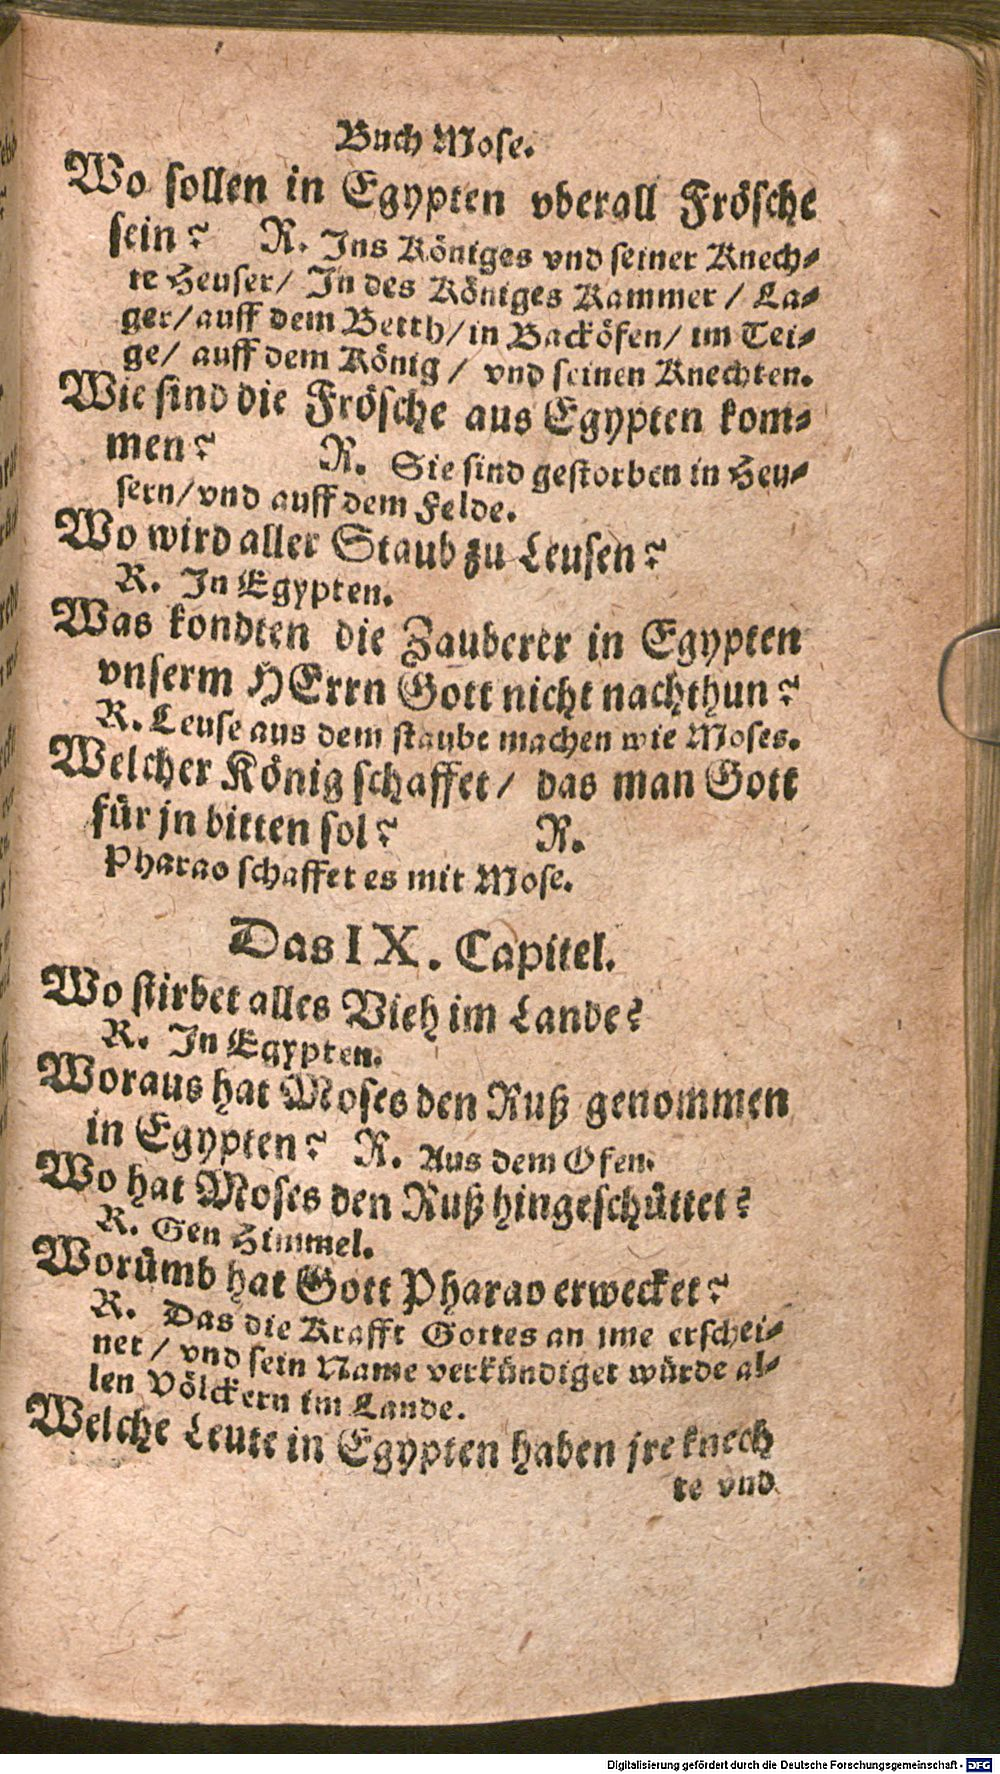 Buch Mose.
Wo sollen in Egypten vberall Frösche
sein? R. Ins Königes vnd seiner Knech-
te Heuser/ In des Königes Kammer / La-
ger/ auff dem Betth/ in Backöfen/ im Tei-
ge/ auff dem König / vnd seinen Knechten.
Wie sind die Frösche aus Egypten kom-
men? R. Sie sind gestorben in Heu-
sern/ vnd auff dem Felde.
Wo wird aller Staub zu Leusen?
R. In Egypten.
Was kondten die Zauberer in Egypten
vnserm HErrn Gott nicht nachthun?
R. Leuse aus dem staube machen wie Moses.
Welcher König schaffet / das man Gott
für jn bitten sol? R.
Pharao schaffet es mit Mose.
Das IX. Capitel.
Wo stirbet alles Vieh im Lande?
R. In Egypten.
Woraus hat Moses den Ruß genommen
in Egypten? R. Aus dem Ofen.
Wo hat Moses den Ruß hingeschüttet?
R. Gen Himmel.
Worümb hat Gott Pharao erwecket?
R. Das die Krafft Gottes an ime erschei-
net / vnd sein Name verkündiget würde al-
len Völckern im Lande.
Welche Leute in Egypten haben jre knech
te vnd
Digitalisierung gefördert durch die Deutsche Forschungsgemeinschaft - DFG